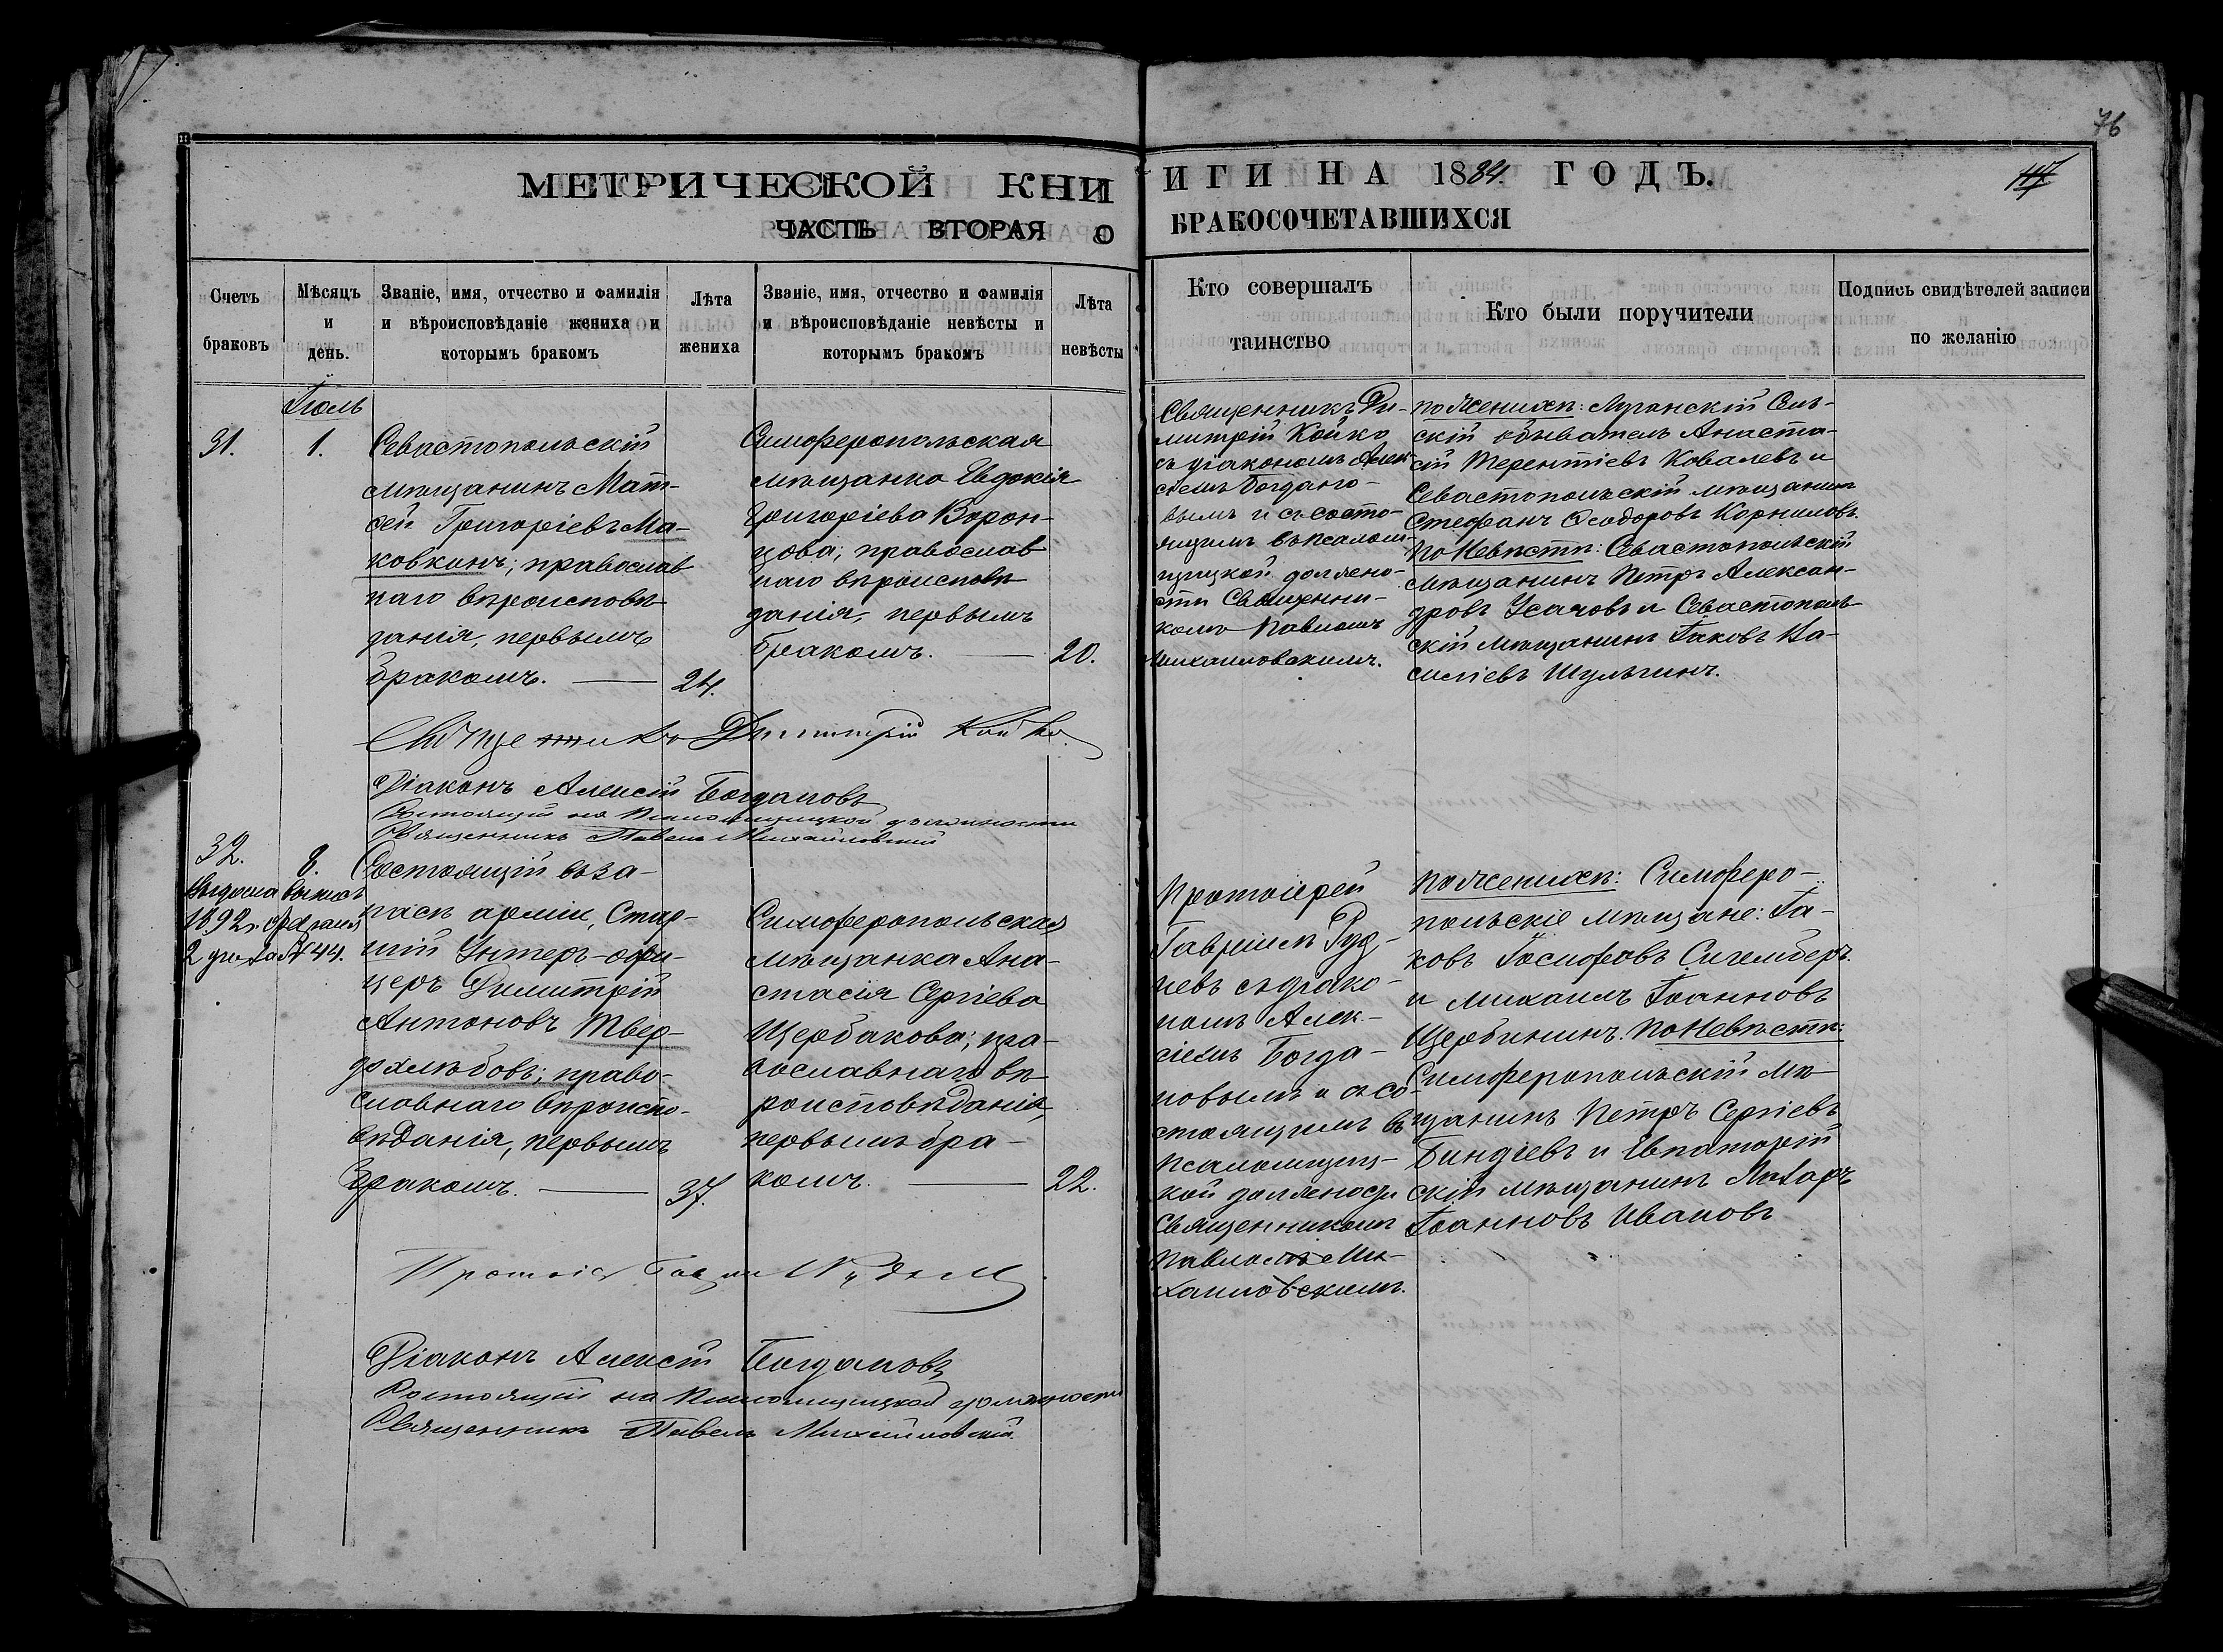 76
МЕТРИЧЕСКОЙ КНИ
ИГИ НА 1884. ГОДЪ.
117
ЧАСТЬ ВТОРАЯ О
БРАКОСОЧЕТАВШИХСЯ
Счетъ браковъ
Мѣсяцъ и день.
Званіе, имя, отчество и фамилія
и вѣроисповѣданіе жениха и
которымъ бракомъ
Лѣта жениха
Званіе, имя, отчество и фамилія
и вѣроисповѣданіе невѣсты и
которымъ бракомъ
Лѣта невѣсты
Кто совершалъ
таинство
Кто были поручители
Подпись свидѣтелей записи
по желанію
Іюль
31.
1.
Севастопольскій
мѣщанинъ Мат-
ѳей Григоріевъ Ма-
ковкинъ; православ
наго вѣроисповѣ
данія, первымъ
бракомъ.
24.
Симферопольская
мѣщанка Евдокія
Григоріева Ворон-
цова; православ
наго вѣроисповѣ
данія, первымъ
бракомъ.
20.
Священникъ Ди-
митрій Койко
съ діакономъ Алек-
сіемъ Богдано-
вымъ и съ состо-
ящимъ въ псалом-
щицкой должно-
сти Священни-
комъ Павломъ
Михаиловскимъ.
По женихѣ: Луганскій Сель-
скій обыватель Анаста-
сій Терентіевъ Ковалевъ и
Севастопольскій мѣщанинъ
Стефанъ Ѳеодоровъ Корниловъ.
По невѣстѣ: Севастопольскій
мѣщанинъ Петръ Алексан-
дровъ Усачовъ и Севастополь-
скій мѣщанинъ Іаковъ Ва-
силіевъ Шульгинъ.
Священникъ Димитрій Койко.
Діаконъ Алексій Богдановъ
Состоящій на Псаломщицкой должности
Священникъ Павелъ Михайловскій
32.
8.
Выдана выпись
1892 г.
2 дня за № 44.
Состоящій въ за-
пасѣ арміи, Стар-
шій Унтеръ-офи-
церъ Димитрій
Антоновъ Твер-
дохлѣбовъ; право-
славнаго вѣроиспо-
вѣданія, первымъ
бракомъ.
37.
Симферопольская
мѣщанка Ана-
стасія Сергіева
Щербакова; пра-
вославнаго вѣ
роисповѣданія,
первымъ бра-
комъ.
22.
Протоіерей
Гавріилъ Руд-
невъ съ діако-
номъ Алек-
сіемъ Богда-
новымъ и съ со-
стоящимъ въ
Псаломщиц-
кой должности
Священникомъ
Павломъ Ми-
хаиловскимъ.
По женихѣ: Симферо-
польскіе мѣщане: Іа-
ковъ Іосифовъ
и Михаилъ Іоанновъ
Щербининъ. По невѣстѣ:
Симферопольскій мѣ-
щанинъ Петръ Сергіевъ
Биндіевъ и Евпаторій
скій мѣщанинъ Лазарь
Іоанновъ Ивановъ
Діаконъ Алексій Богдановъ
Состоящій на Псаломщицкой должности
Священникъ Павелъ Михайловскій.